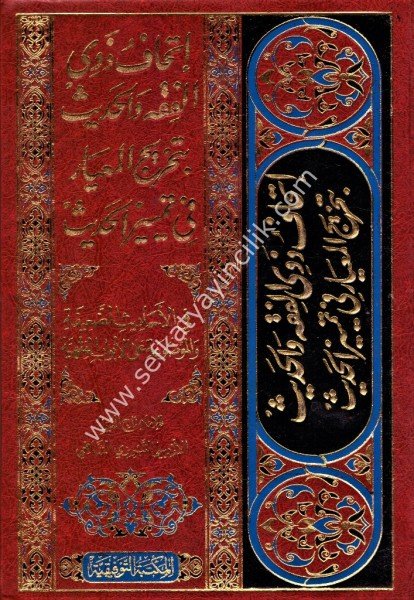 إتحاف ذوي
الفقه والحديث
بتخريج المعيار
في تمييز الحديث
الأحاديث الضعيفة
المكتبة التوفيقية
إتحاف ذوي الفقه والحديث
بتخريج المعيار في تمييز الحديث
www.serkatyayincilik.com